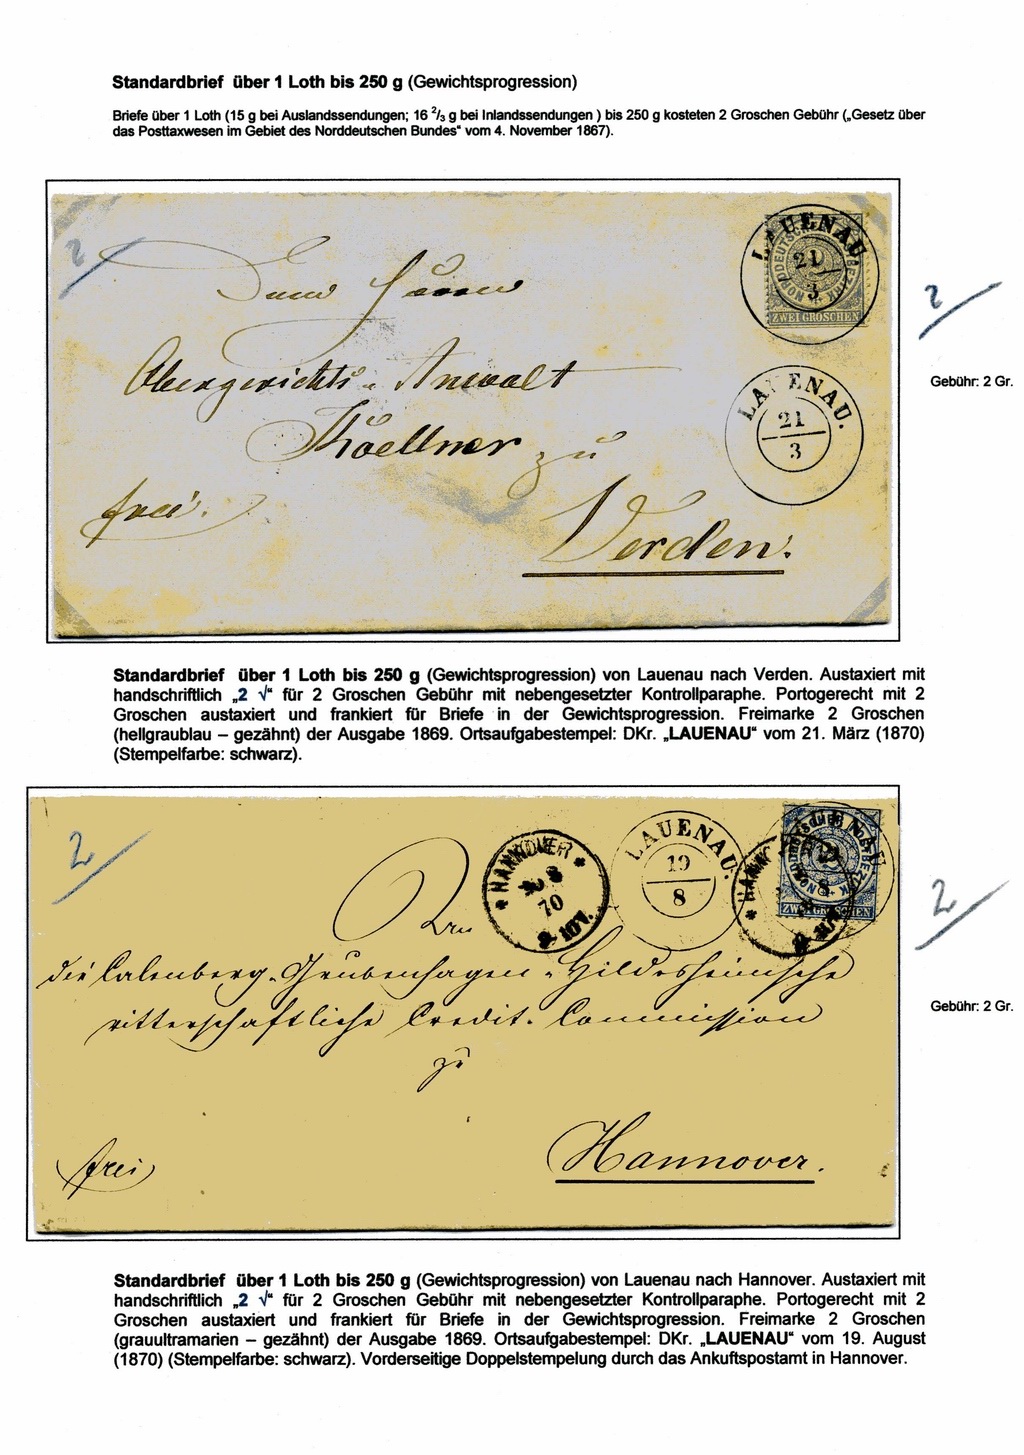 Standardbrief über 1 Loth bis 250 g (Gewichtsprogression)
Briefe über 1 Loth (15 g bei Auslandssendungen; 16 ²/₃ g bei Inlandssendungen ) bis 250 g kosteten 2 Groschen Gebühr („Gesetz über
das Posttaxwesen im Gebiet des Norddeutschen Bundes" vom 4. November 1867).
2
LAUENAU
21
3
NORDDEUTSCHER POSTBEZIRK
ZWEI GROSCHEN
Dem Herrn
Obergerichts-Anwalt
zu
frei.
Verden.
LAUENAU.
21
3
2
Gebühr: 2 Gr.
Standardbrief über 1 Loth bis 250 g (Gewichtsprogression) von Lauenau nach Verden. Austaxiert mit
handschriftlich „2 √" für 2 Groschen Gebühr mit nebengesetzter Kontrollparaphe. Portogerecht mit 2
Groschen austaxiert und frankiert für Briefe in der Gewichtsprogression. Freimarke 2 Groschen
(hellgraublau – gezähnt) der Ausgabe 1869. Ortsaufgabestempel: DKr. „LAUENAU" vom 21. März (1870)
(Stempelfarbe: schwarz).
2
* HANNOVER *
70
LAUENAU.
19
8
NORDDEUTSCHER POSTBEZIRK
ZWEI GROSCHEN
An
die Calenberg-Grubenhagen-Hildesheimsche
ritterschaftliche Credit-Commission
zu
Hannover.
frei
2
Gebühr: 2 Gr.
Standardbrief über 1 Loth bis 250 g (Gewichtsprogression) von Lauenau nach Hannover. Austaxiert mit
handschriftlich „2 √" für 2 Groschen Gebühr mit nebengesetzter Kontrollparaphe. Portogerecht mit 2
Groschen austaxiert und frankiert für Briefe in der Gewichtsprogression. Freimarke 2 Groschen
(grauultramarien – gezähnt) der Ausgabe 1869. Ortsaufgabestempel: DKr. „LAUENAU" vom 19. August
(1870) (Stempelfarbe: schwarz). Vorderseitige Doppelstempelung durch das Ankuftspostamt in Hannover.